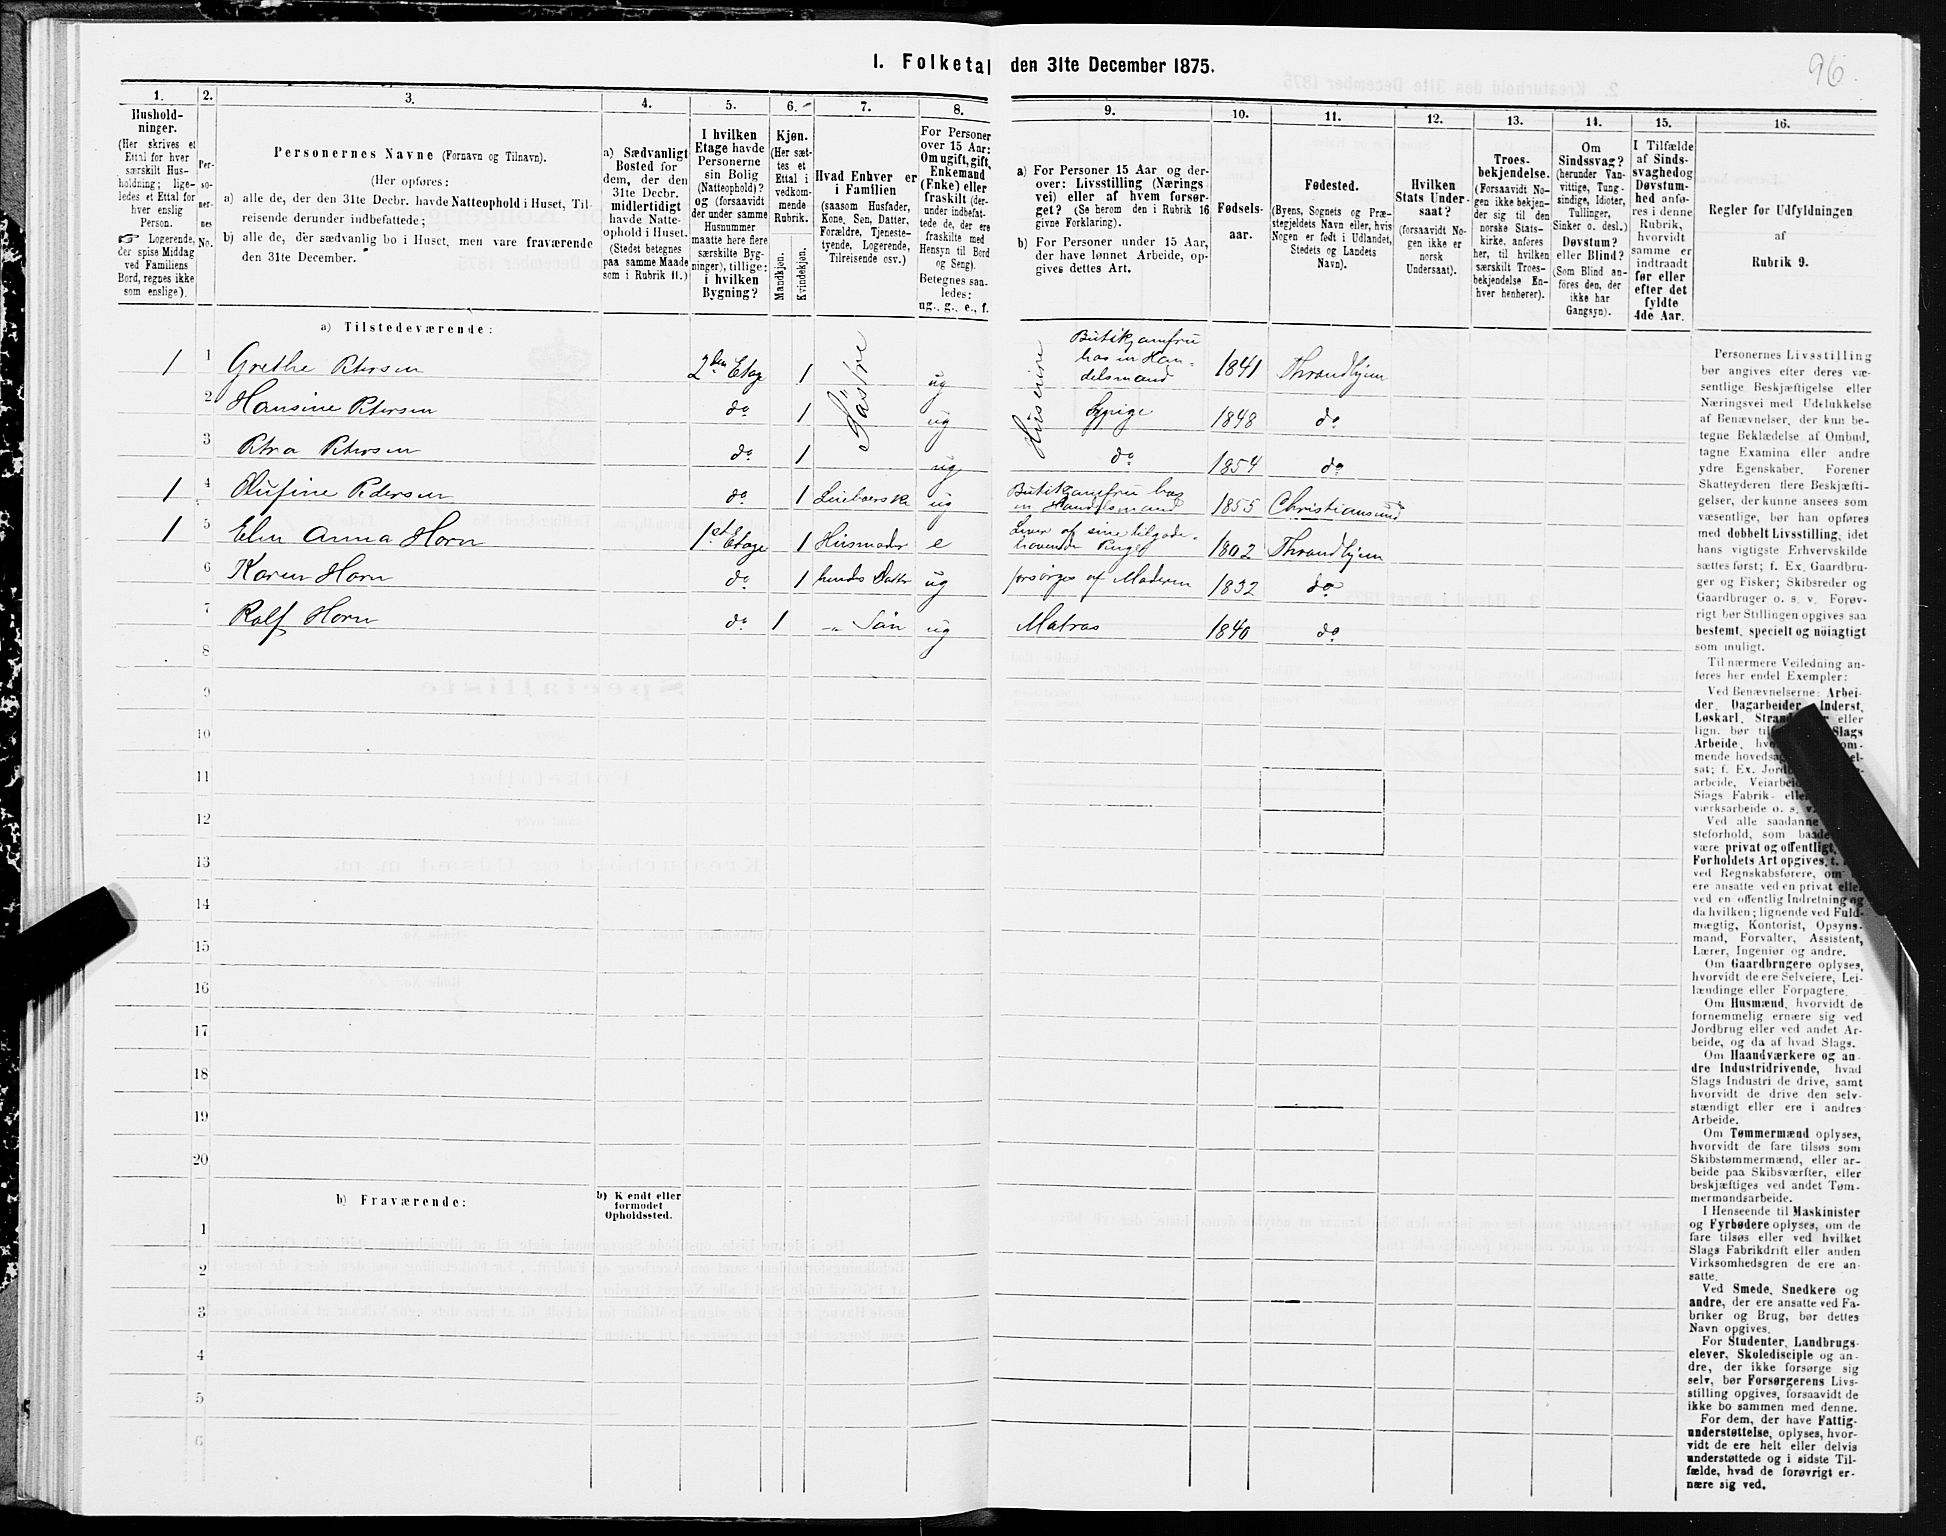 96.
1. Folketal den 31te December 1875.
1. 2. 3. 4. 5. 6. 7. 8. 9. 10. 11. 12. 13. 14. 15. 16.
Hushold-
ninger.
(Her skrives et
Ettal for hver
særskilt Hus-
holdning; lige-
ledes et Ettal for
hver enslig
Person.
☞ Logerende,
der spise Middag
ved Familiens
Bord, regnes ikke
som enslige).
Per-
so-
ner-
nes
No.
Personernes Navne (Fornavn og Tilnavn).
(Her opføres:
a) alle de, der den 31te Decbr. havde Natteophold i Huset, Til-
reisende derunder indbefattede;
b) alle de, der sædvanlig bo i Huset, men vare fraværende
den 31te December.
a) Sædvanligt
Bosted for
dem, der den
31te Decbr.
midlertidigt
havde Natte-
ophold i Huset.
(Stedet betegnes
paa samme Maade
som i Rubrik 11.)
I hvilken
Etage havde
Personerne
sin Bolig
(Natteophold)?
og (forsaavidt
der under samme
Husnummer
maatte høre flere
særskilte Byg-
ninger), tillige:
i hvilken
Bygning?
Kjøn.
(Her sæt-
tes et
Ettal i
vedkom-
mende
Rubrik.
Mandkjøn.
Kvindekjøn.
Hvad Enhver er
i Familien
(saasom Husfader,
Kone, Søn, Datter,
Forældre, Tjeneste-
tyende, Logerende,
Tilreisende osv.)
For Personer
over 15 Aar:
Om ugift, gift,
Enkemand
(Enke) eller
fraskilt (der-
under indbefat-
tede de, der ere
fraskilte med
Hensyn til Bord
og Seng).
Betegnes saa-
ledes:
ug., g., e., f.
a) For Personer 15 Aar og der-
over: Livsstilling (Nærings
vei) eller af hvem forsør-
get? (Se herom den i Rubrik 16
givne Forklaring).
b) For Personer under 15 Aar,
der have lønnet Arbeide, op-
gives dettes Art.
Fødsels-
aar.
Fødested.
(Byens, Sognets og Præ-
stegjeldets Navn eller, hvis
Nogen er født i Udlandet,
Stedets og Landets
Navn).
Hvilken
Stats Under-
saat?
(forsaavidt No-
gen ikke er
norsk
Undersaat).
Troes-
bekjendelse.
(Forsaavidt No-
gen ikke bekjen-
der sig til den
norske Stats-
kirke, anføres
her, til hvilken
særskilt Troes-
bekjendelse En-
hver henhører).
Om
Sindssvag?
(herunder Van-
vittige, Tung-
sindige, Idioter,
Tullinger,
Sinker o. desl.)
Døvstum?
eller Blind?
(Som Blind an-
føres den, der
ikke har
Gangsyn).
I Tilfælde
af Sinds-
svaghed og
Døvstum-
hed anfø-
res i denne
Rubrik,
hvorvidt
samme er
indtraadt
før eller
efter det
fyldte
4de Aar.
Regler for Udfyldningen
af
Rubrik 9.
a) Tilstedeværende:
1 1 Grethe Petersen 2den Etage 1 Søstre ug Huseiere Butikjomfru hos en Han-delsmand 1841 Throndhjem
2 Hansine Petersen do 1 ug Sypige 1848 do
3 Petra Petersen do 1 ug do 1854 do
1 4 Olufine Pedersen do 1 ug Butikjomfru hos en Handelsmand 1855 Christiansund
1 5 Elen Anna Horn 1ste Etage 1 Husmoder e Lever af sine tilgode-havende Penge 1802 Throndhjem
6 Karen Horn do 1 hendes Datter ug forsørges af Moderen 1832 do
7 Rolf Horn do 1 -„- Søn ug Matros 1840 do
8
9
10
11
12
13
14
15
16
17
18
19
20
b) Fraværende:
b) Kjendt eller
formodet
Opholdssted.
1
2
3
4
5
6
Personernes Livsstilling
bør angives efter deres væ-
sentlige Beskjæftigelse eller
Næringsvei med Udelukkelse
af Benævnelser, der kun be-
tegne Beklædelse af Ombud,
tagne Examina eller andre
ydre Egenskaber. Forener
Skatteyderen flere Beskjæfti-
gelser, der kunne ansees som
væsentlige, bør han opføres
med dobbelt Livsstilling, idet
hans vigtigste Erhvervskilde
sættes først; f. Ex. Gaardbru-
ger og Fisker; Skibsreder og
Gaardbruger o. s. v. Forøv-
rigt bør Stillingen opgives saa
bestemt, specielt og nöiagtigt
som muligt.
Til nærmere Veiledning an-
føres her endel Exempler:
Ved Benævnelserne: Arbei-
der, Dagarbeider, Inderst,
Løskarl, eller
lign. bør Slags
Arbeide,
mende
sat; f. Ex.
arbeide,
Slags Fabrik-
værksarbeide o. s. v.
Ved alle saadanne
steforhold, som
være privat og offentligt,
Forholdets Art opgives,
ved Regnskabsførere, om
ere ansatte ved en privat eller
ved en offentlig Indretning og
da hvilken; lignende ved Fuld-
mægtig, Kontorist, Opsyns-
mand, Forvalter, Assistent,
Lærer, Ingeniør og andre.
Om Gaardbrugere oplyses,
hvorvidt de ere Selveiere, Lei-
lændinge eller Forpagtere.
Om Husmænd, hvorvidt de
fornemmelig ernære sig ved
Jordbrug eller ved andet Ar-
beide, og da af hvad Slags.
Om Haandværkere og an-
dre Industridrivende, hvad
Slags Industri de drive, samt
hvorvidt de drive den selv-
stændigt eller ere i andres
Arbeide.
Om Tømmermænd oplyses,
hvorvidt de fare tilsøs som
Skibstømmermænd, eller ar-
beide paa Skibsværfter, eller
beskjæftiges ved andet Tøm-
mermandsarbeide.
I Henseende til Maskinister
og Fyrbødere oplyses, om de
fare tilsøs eller ved hvilket
Slags Fabrikdrift eller anden
Virksomhedsgren de ere an-
satte.
Ved Smede, Snedkere og
andre, der ere ansatte ved Fa-
briker og Brug, bør dettes
Navn opgives.
For Studenter, Landbrugs-
elever, Skoledisciple og an-
dre, der ikke forsørge sig
selv, bør Forsørgerens Livs-
stilling opgives, forsaavidt de
ikke bo sammen med denne.
For dem, der have Fattig-
understøttelse, oplyses, hvor-
vidt de ere helt eller delvis
understøttede og i sidste Til-
fælde, hvad de forøvrigt er-
nære sig ved.